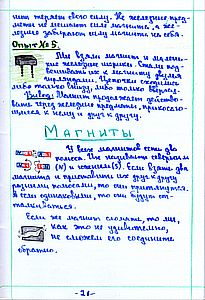 нит теряет свою силу. Не железные пред-
меты не мешают силе магнита, а же-
лезные забирают силу магнита на себя.
Опыт № 5.
Мы взяли магнит и малень-
кие железные шарики. Стали под-
вешивать их к магниту двумя
способами. Цепочка
либо только вниз, либо только вверх.
Вывод: Магнит продолжает действо-
вать через железные предметы, прикоса-
ющиеся к нему и друг к другу.
МАГНИТЫ
У всех магнитов есть два
полюса. Их называют северным
(N) и южным (S). Если взять два
магнита и приставить их друг к другу
разными полюсами, то они притянутся.
А если одинаковыми, то они будут от-
талкиваться.
Если же магнит сломать, то мы,
как это не удивительно,
не сможем его соединить
обратно.
- 21 -